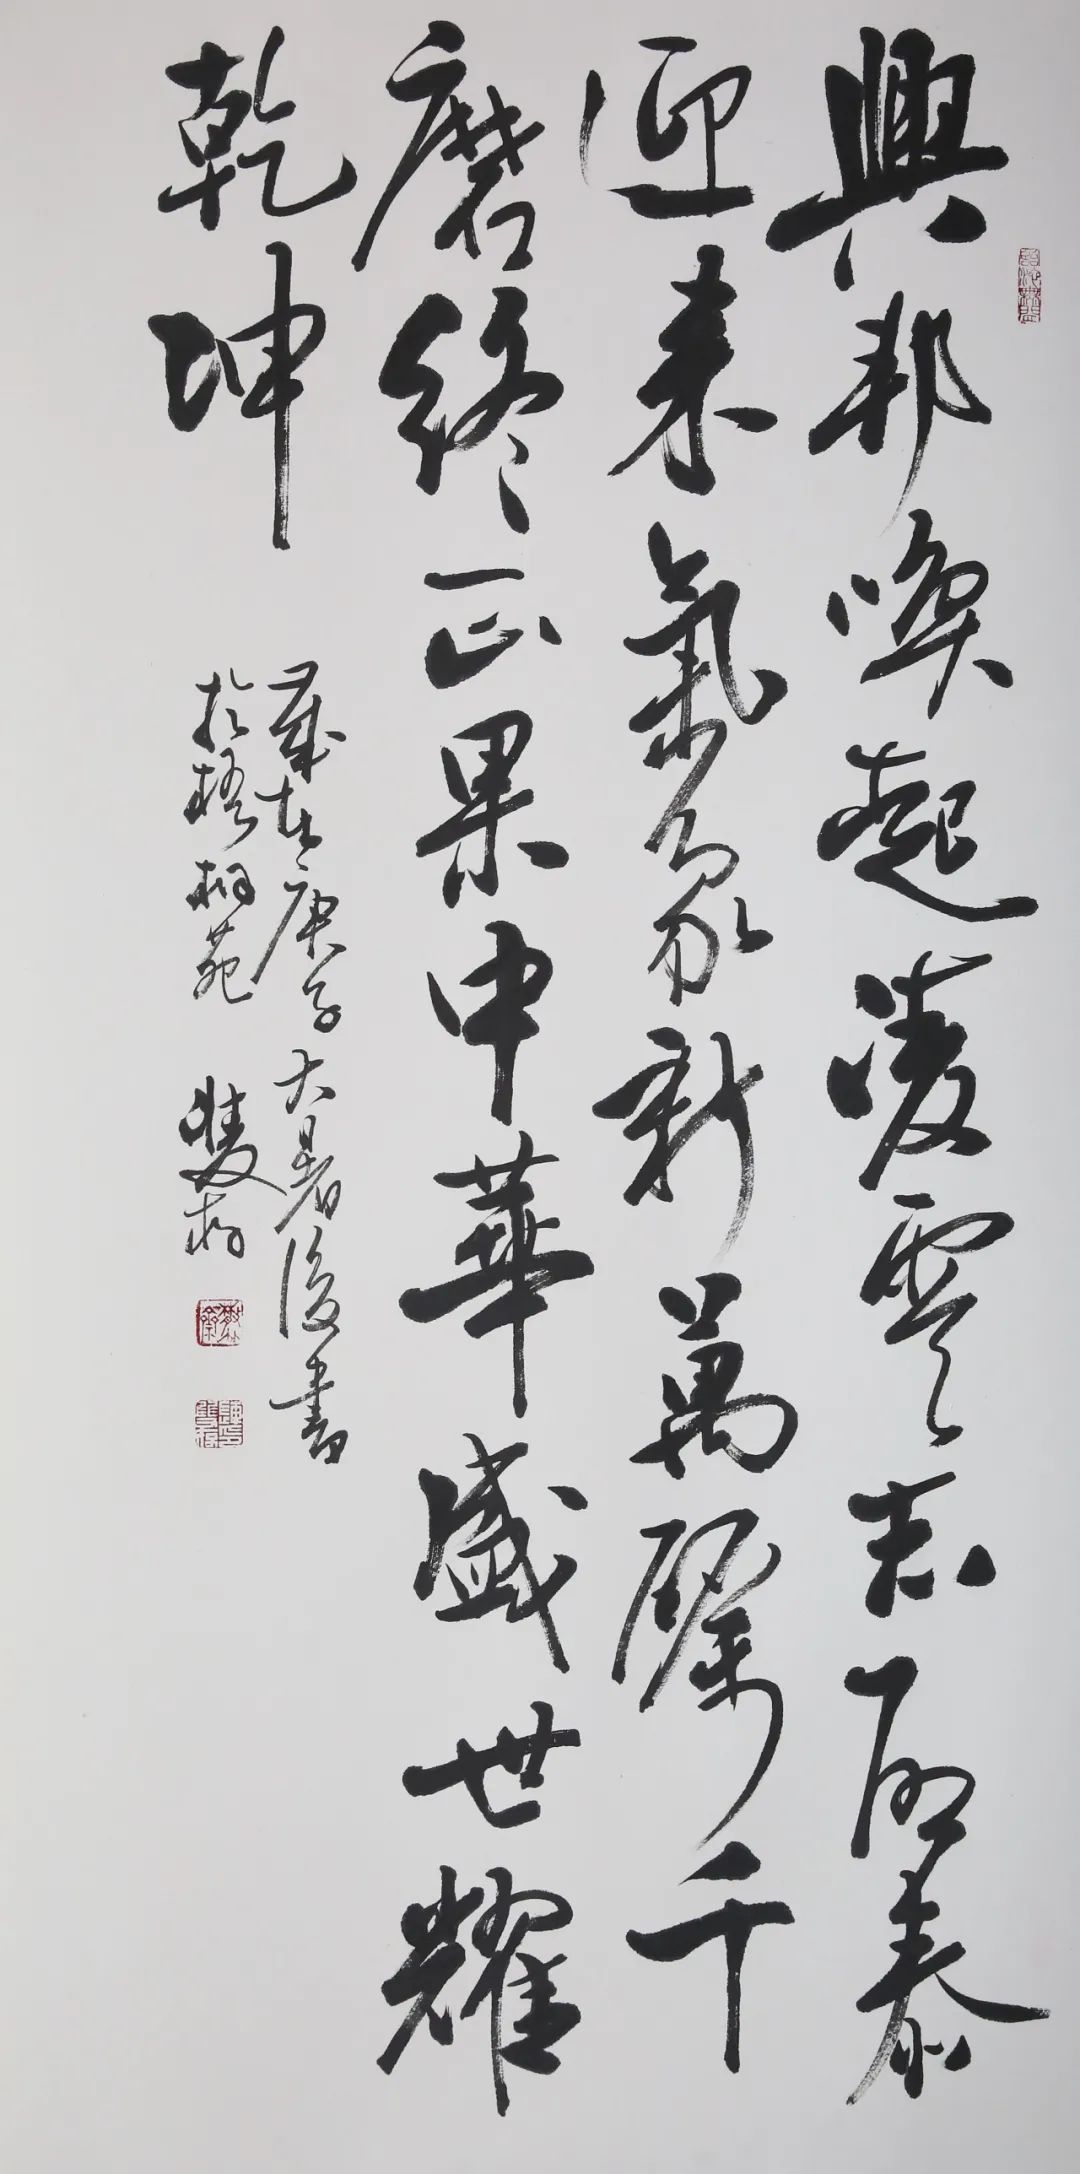 興邦喚起凌雲志啟泰
迎來氣象新萬礪千
磨終正果中華盛世耀
乾坤
歲在庚子大暑後書
於梧桐苑 雙